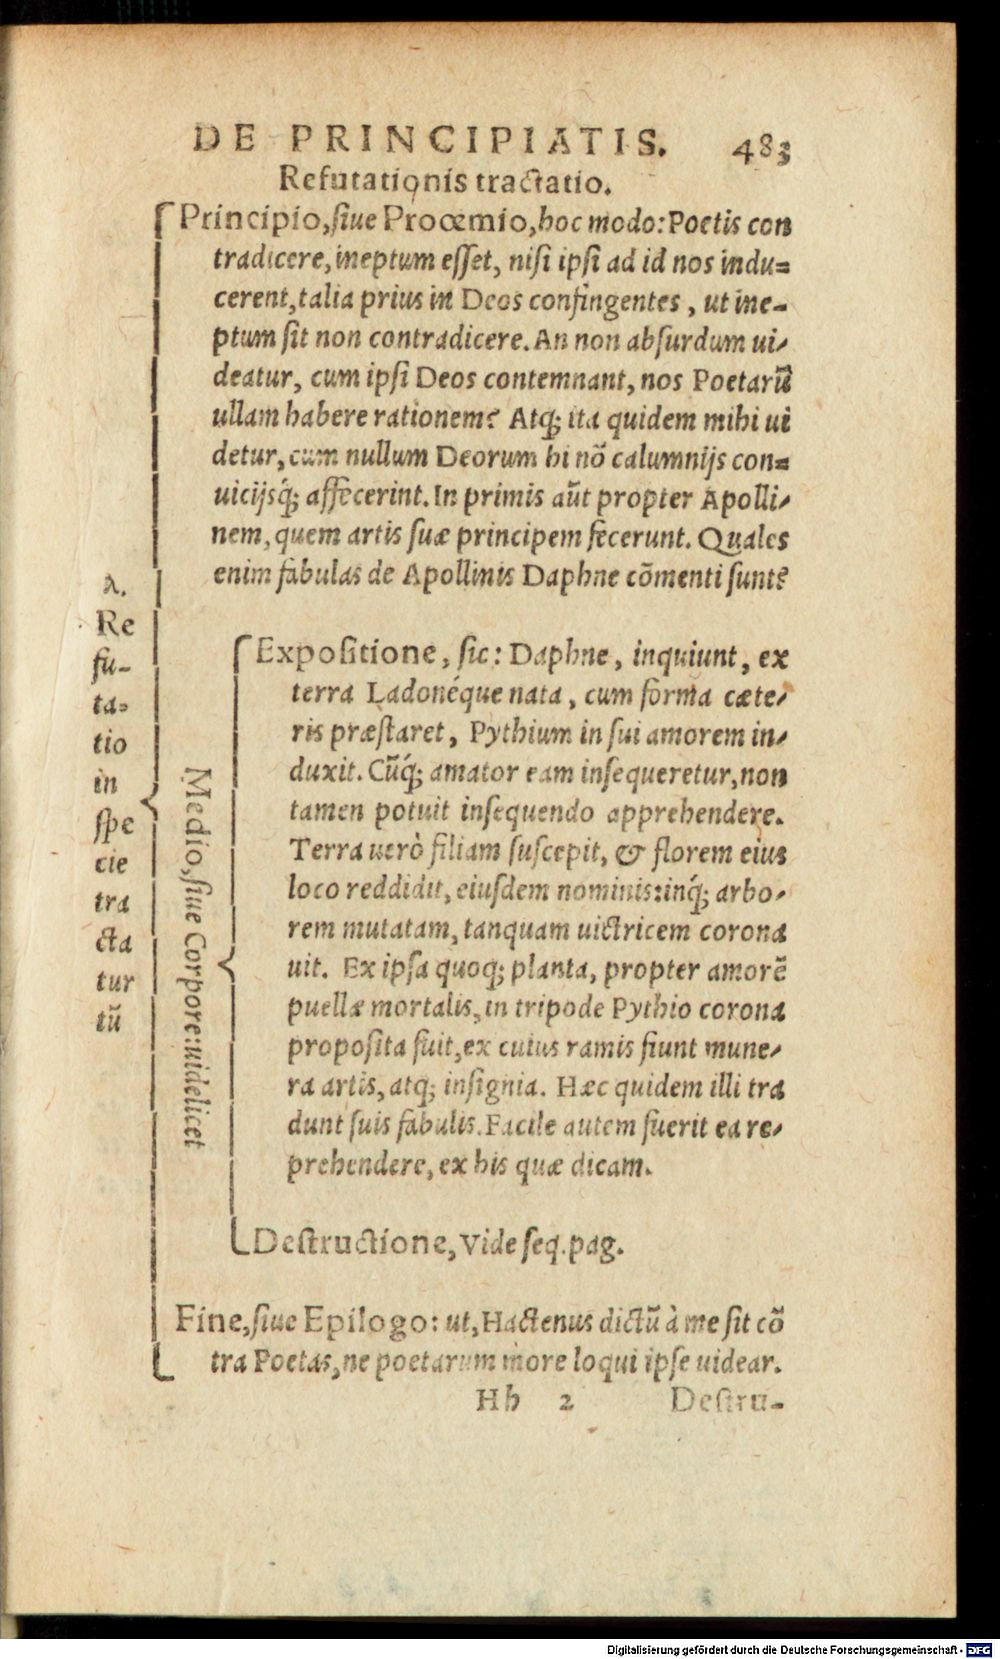 DE PRINCIPIATIS. 483
Refutationis tractatio.
Principio, siue Proœmio, hoc modo: Poetis con
tradicere, ineptum esset, nisi ipsi ad id nos indu=
cerent, talia prius in Deos confingentes, ut ine-
ptum sit non contradicere. An non absurdum ui-
deatur, cum ipsi Deos contemnant, nos Poetarũ
ullam habere rationem? Atq; ita quidem mihi ui
detur, cum nullum Deorum hi nõ calumnijs con=
uicijsq́; affecerint. In primis aũt propter Apolli-
nem, quem artis suæ principem fecerunt. Quales
enim fabulas de Apollinis Daphne cõmenti sunt?
A.
Re
fu-
ta-
tio
in
spe
cie
tra
cta
tur
tũ
Medio, siue Corpore: uidelicet
Expositione, sic: Daphne, inquiunt, ex
terra Ladonéque nata, cum forma cæte-
ris præstaret, Pythium in sui amorem in-
duxit. Cũq́; amator eam insequeretur, non
tamen potuit insequendo apprehendere.
Terra uerò filiam suscepit, & florem eius
loco reddidit, eiusdem nominis: inq́; arbo-
rem mutatam, tanquam uictricem corona
uit. Ex ipsa quoq; planta, propter amorẽ
puellæ mortalis, in tripode Pythio corona
proposita fuit, ex cuius ramis fiunt mune-
ra artis, atq; insignia. Hæc quidem illi tra
dunt suis fabulis. Facile autem fuerit ea re-
prehendere, ex his quæ dicam.
Destructione, Vide seq. pag.
Fine, siue Epilogo: ut, Hactenus dictũ à me sit cõ
tra Poetas, ne poetarum more loqui ipse uidear.
Hh 2 Destru-
Digitalisierung gefördert durch die Deutsche Forschungsgemeinschaft - DFG